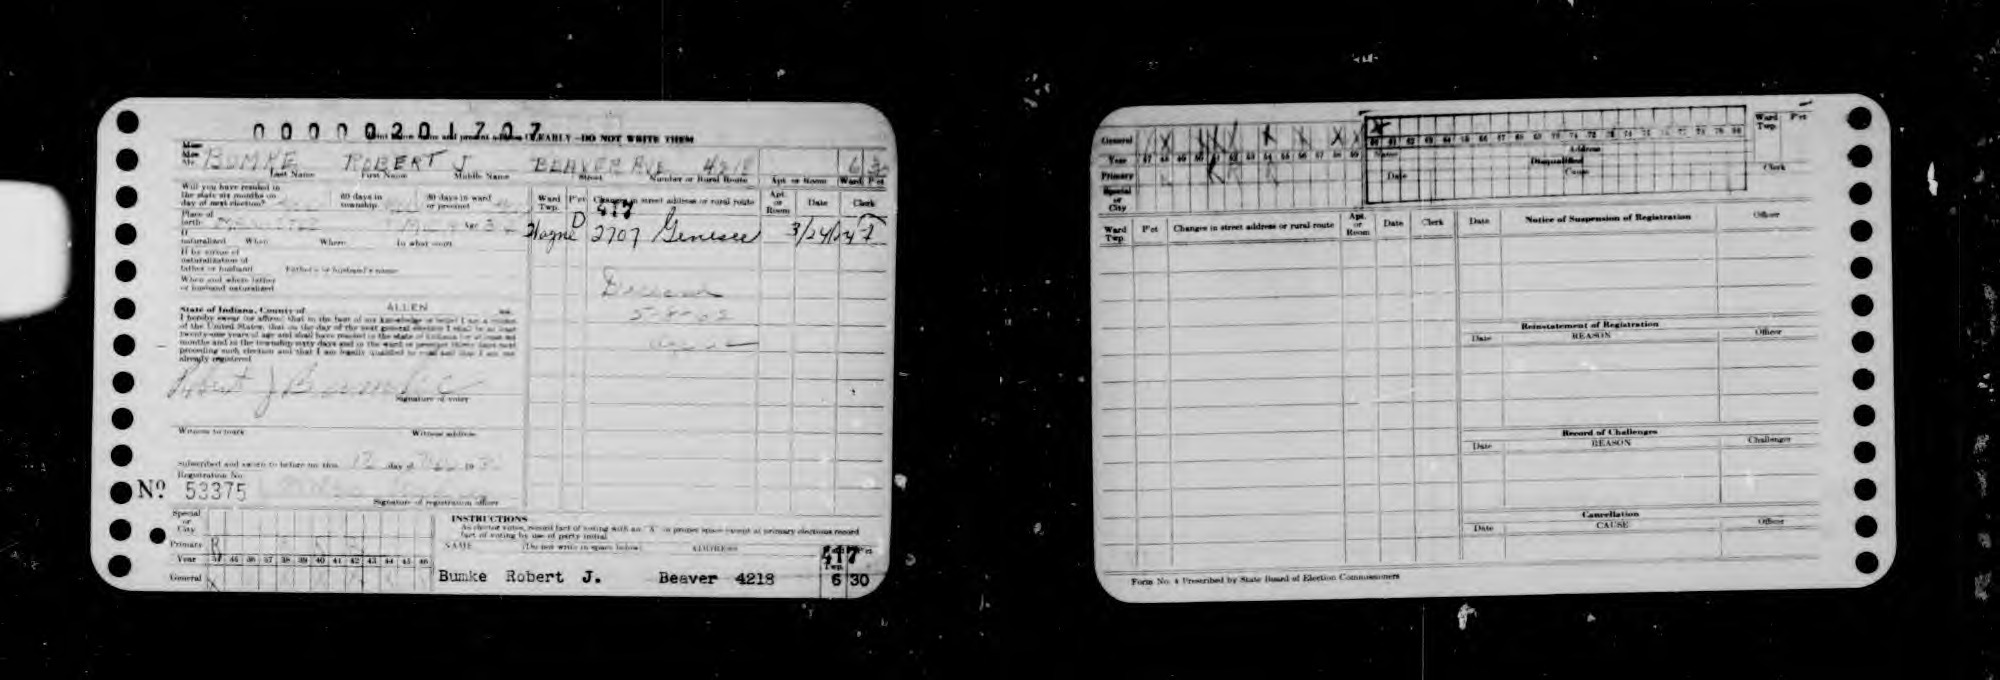 0 0 0 0 0 2 0 1 7 0 7
CLEARLY—DO NOT WRITE THEM
BUMKE ROBERT J. BEAVER AVE 4218 6
Last Name First Name Middle Name Street Number or Rural Route Apt. or Room Ward P'ct
Will you have resided in
the state six months on 60 days in 30 days in ward
day of next election? township or precinct
Ward Twp. P'ct Changes in street address or rural route Apt. or Room Date Clerk
417
Place of
birth Age
Wayne D 2707 Genesee 3/24/
If
naturalized When Where In what court
If by virtue of
naturalization of
father or husband Father's or husband's name
When and where father
or husband naturalized
Deceased
State of Indiana, County of ALLEN ss.
I hereby swear (or affirm) that to the best of my knowledge or belief I am a citizen
of the United States, that on the day of the next general election I shall be at least
twenty-one years of age and shall have resided in the state of Indiana for at least six
months and in the township sixty days and in the ward or precinct thirty days next
preceding such election and that I am legally qualified to vote and that I am not
already registered
Robert J Bumke
Signature of voter
Witness to mark Witness address
Subscribed and sworn to before me this 12 day of 19
Registration No.
Nº 53375
Signature of registration officer
Special
or
City
Primary R
Year 36 37 38 39 40 41 42 43 44 45 46
General X
INSTRUCTIONS
As elector votes, record fact of voting with an "X" in proper space except at primary elections record
fact of voting by use of party initial
NAME (Do not write in space below) ADDRESS
417
Twp.
Bumke Robert J. Beaver 4218 6 30
General X X X X X X
Year 47 48 49 50 51 52 53 54 55 56 57 58 59 60 61 62 63 64 65 66 67 68 69 70 71 72 73 74 75 76 77 78 79 80
Primary R R R
Special
or
City
Name Address
Disqualified
Date Cause
Ward Twp. P'ct
Clerk
Ward Twp. P'ct Changes in street address or rural route Apt. or Room Date Clerk
Date Notice of Suspension of Registration Officer
Reinstatement of Registration
Date REASON Officer
Record of Challenges
Date REASON Challenger
Cancellation
Date CAUSE Officer
Form No. 4 Prescribed by State Board of Election Commissioners